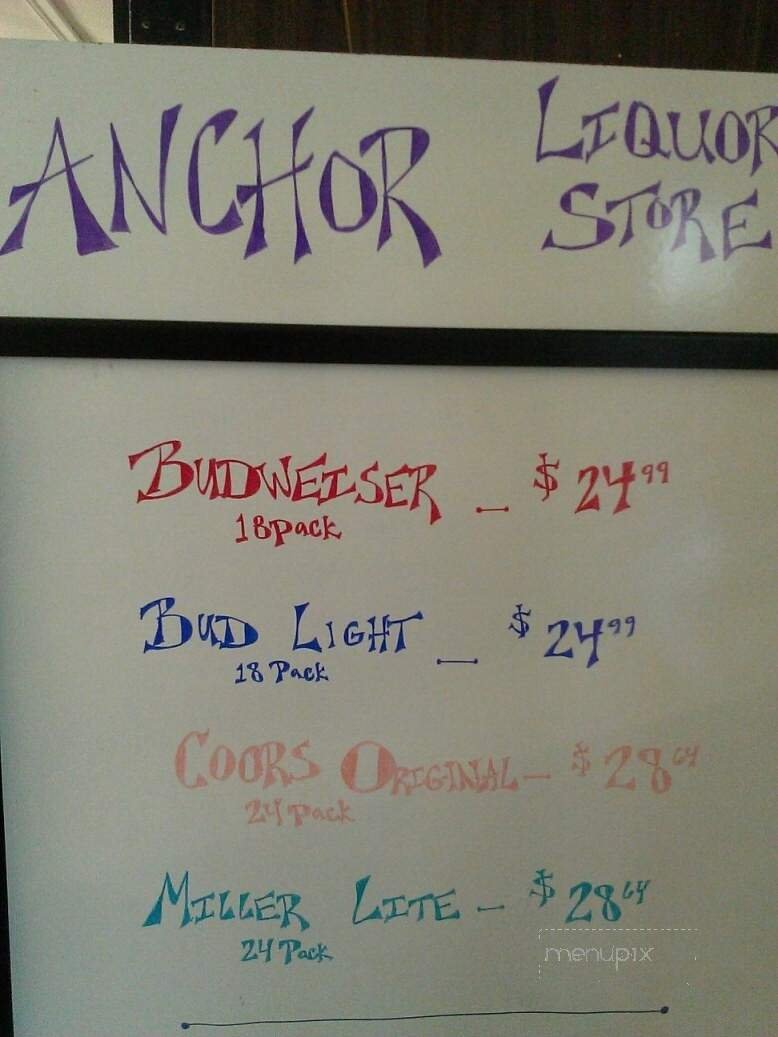 ANCHOR LIQUOR STORE
BUDWEISER - $24.99
18pack
BUD LIGHT - $24.99
18 Pack
COORS ORIGINAL - $28.64
24 pack
MILLER LITE - $28.64
24 Pack
menupix